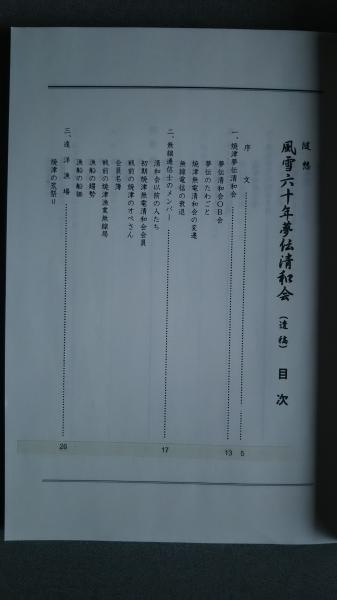 随想
風雪六十年夢伝清和会（遺稿）目次
序文 5
一、焼津夢伝清和会 13
夢伝清和会OB会
夢伝のたわごと
焼津無電清和会の変遷
無線電信の衰退
二、無線通信士のメンバー 17
清和会以前の人たち
初期焼津無電清和会会員
戦前の焼津のオペさん
会員名簿
戦前の焼津漁業無線局
漁船の趨勢
漁船の船価
三、遠洋漁場 26
焼津の荒祭り